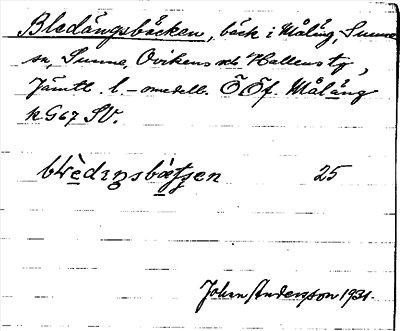 Bledångsbäcken, bäck i Målång, Sunne
sn, Sunne, Ovikens och Hallens tg,
Jämtl. l. - omedelb. Ö Öf. Målång
k G67 SV.
25
Johan Andersson 1931.